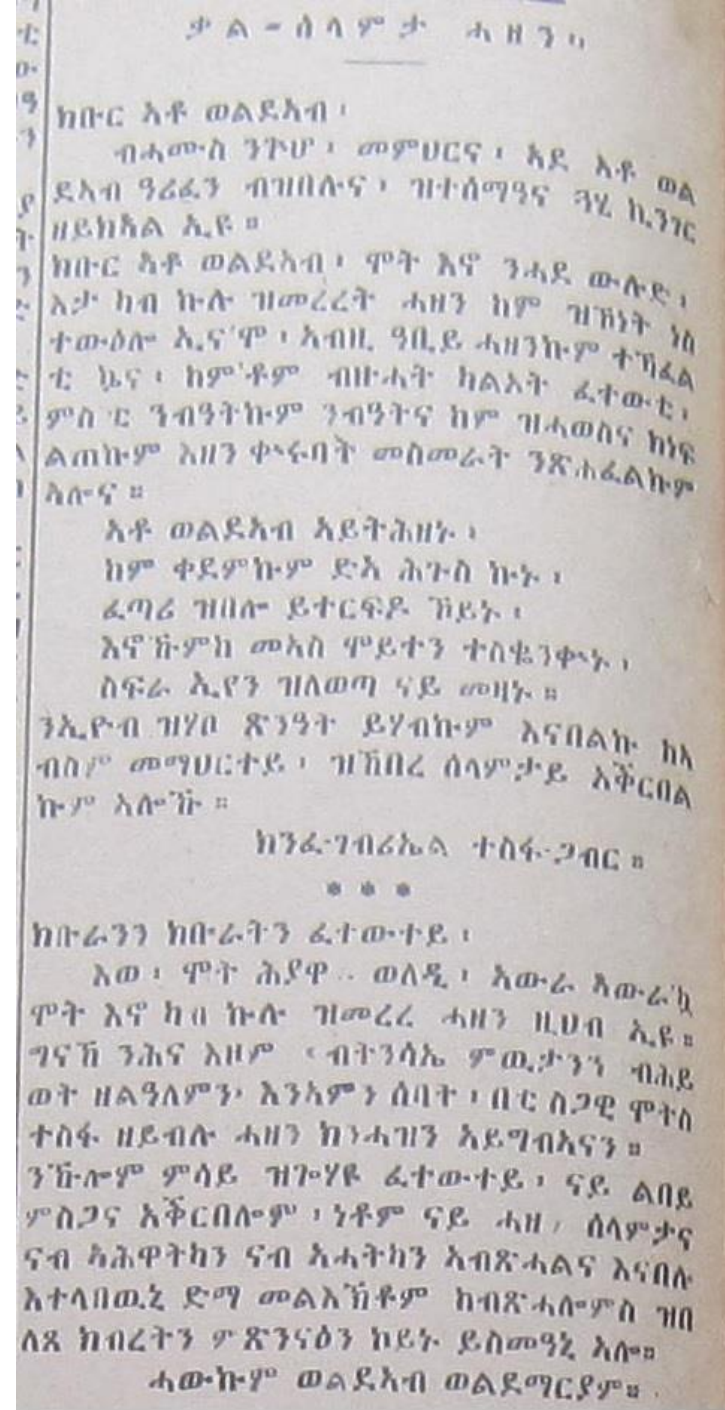 ቃል-ሰላምታ ሓዘን።
ክቡር ኣቶ ወልደኣብ፡
ብሓሙስ ንጉሆ፡ መምህርና፡ ኣደ ኣቶ ወል
ደኣብ ዓሪፈን ብዝበሉና፡ ዝተሰማዓና ጓሂ ኪንገር
ዘይከኣል ኢዩ።
ክቡር ኣቶ ወልደኣብ፡ ሞት እኖ ንሓደ ውሉድ፡
እታ ካብ ኩሉ ዝመረረት ሓዘን ከም ዝኾነት ነስ
ተውዕሎ ኢና'ሞ፡ ኣብዚ ዓቢይ ሓዘንኩም ተኻፈል
ቲ ኴና፡ ከም'ቶም ብዙሓት ካልኦት ፈተውቲ፡
ምስ'ቲ ንብዓትኩም ንብዓትና ከም ዝሓወስና ክነፍ
ልጠኩም እዘን ቍሩባት መስመራት ንጽሐፈልኩም
ኣሎና።
ኣቶ ወልደኣብ ኣይትሕዘኑ፡
ከም ቀደምኩም ድኣ ሕጉስ ኩኑ፡
ፈጣሪ ዝበሎ ይተርፍዶ ኸይኑ፡
እኖኹምከ መኣስ ሞይተን ተስቈንቍኑ፡
ስፍራ ኢየን ዝለወጣ ናይ መዛኑ።
ንኢዮብ ዝሃቦ ጽንዓት ይሃብኩም እናበልኩ ከኣ
ብስም መማህርተይ፡ ዝኸበረ ሰላምታይ አቕርበል
ኩም ኣሎኹ።
ክንፈ-ገብሪኤል ተስፋ-ጋብር።
* * *
ክቡራንን ክቡራትን ፈተውተይ፡
እወ፡ ሞት ሕያዋ .. ወለዲ፡ ኣውራ ኣውራ'ኳ
ሞት እኖ ካብ ኩሉ ዝመረረ ሓዘን ዚህብ ኢዩ።
ግናኸ ንሕና እዞም ‹ብትንሳኤ ምዉታንን ብሕይ
ወት ዘልዓለምን› እንኣምን ሰባት፡ በቲ ስጋዊ ሞትስ
ተስፋ ዘይብሉ ሓዘን ክንሓዝን ኣይግብኣናን።
ንኹሎም ምሳይ ዝጐሃዩ ፈተውተይ፡ ናይ ልበይ
ምስጋና አቕርበሎም፡ ነቶም ናይ ሓዘን ሰላምታና
ናብ ኣሕዋትካን ናብ ኣሓትካን ኣብጽሓልና እናበሉ
እተላበዉኒ ድማ መልእኽቶም ከብጽሓሎምስ ዝበ
ለጸ ክብረትን ምጽንናዕን ኮይኑ ይስመዓኒ ኣሎ።
ሓውኩም ወልደኣብ ወልደማርያም።